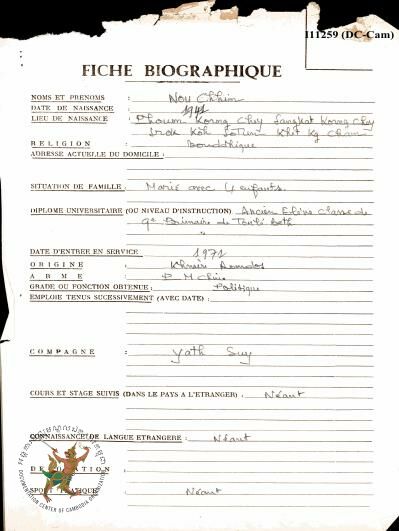 111259 (DC-Cam)
FICHE BIOGRAPHIQUE
NOMS ET PRENOMS : Nou Chhim
DATE DE NAISSANCE : 1941
LIEU DE NAISSANCE : Phoum Korng Chey Sangkat Korng Chey
Srok Koh Sotin Khèt Kg Cham
RELIGION : bouddhique
ADRESSE ACTUELLE DU DOMICILE :
SITUATION DE FAMILLE : Marié avec 4 enfants.
DIPLOME UNIVERSITAIRE (OU NIVEAU D'INSTRUCTION) Ancien Elève classe de
9è Primaire de Tonlé Beth
DATE D'ENTREE EN SERVICE : 1971
ORIGINE : Khmèr Roumdos
ARME : P M Chine
GRADE OU FONCTION OBTENUE : Politique
EMPLOIE TENUS SUCESSIVEMENT (AVEC DATE) :
COMPAGNE : Yath Suy
COURS ET STAGE SUIVIS (DANS LE PAYS A L'ETRANGER) : Néant
CONNAISSANCE DE LANGUE ETRANGERE : Néant
DECORATION :
SPORT PRATIQUE : Néant
DOCUMENTATION CENTER OF CAMBODIA ORGANIZATION